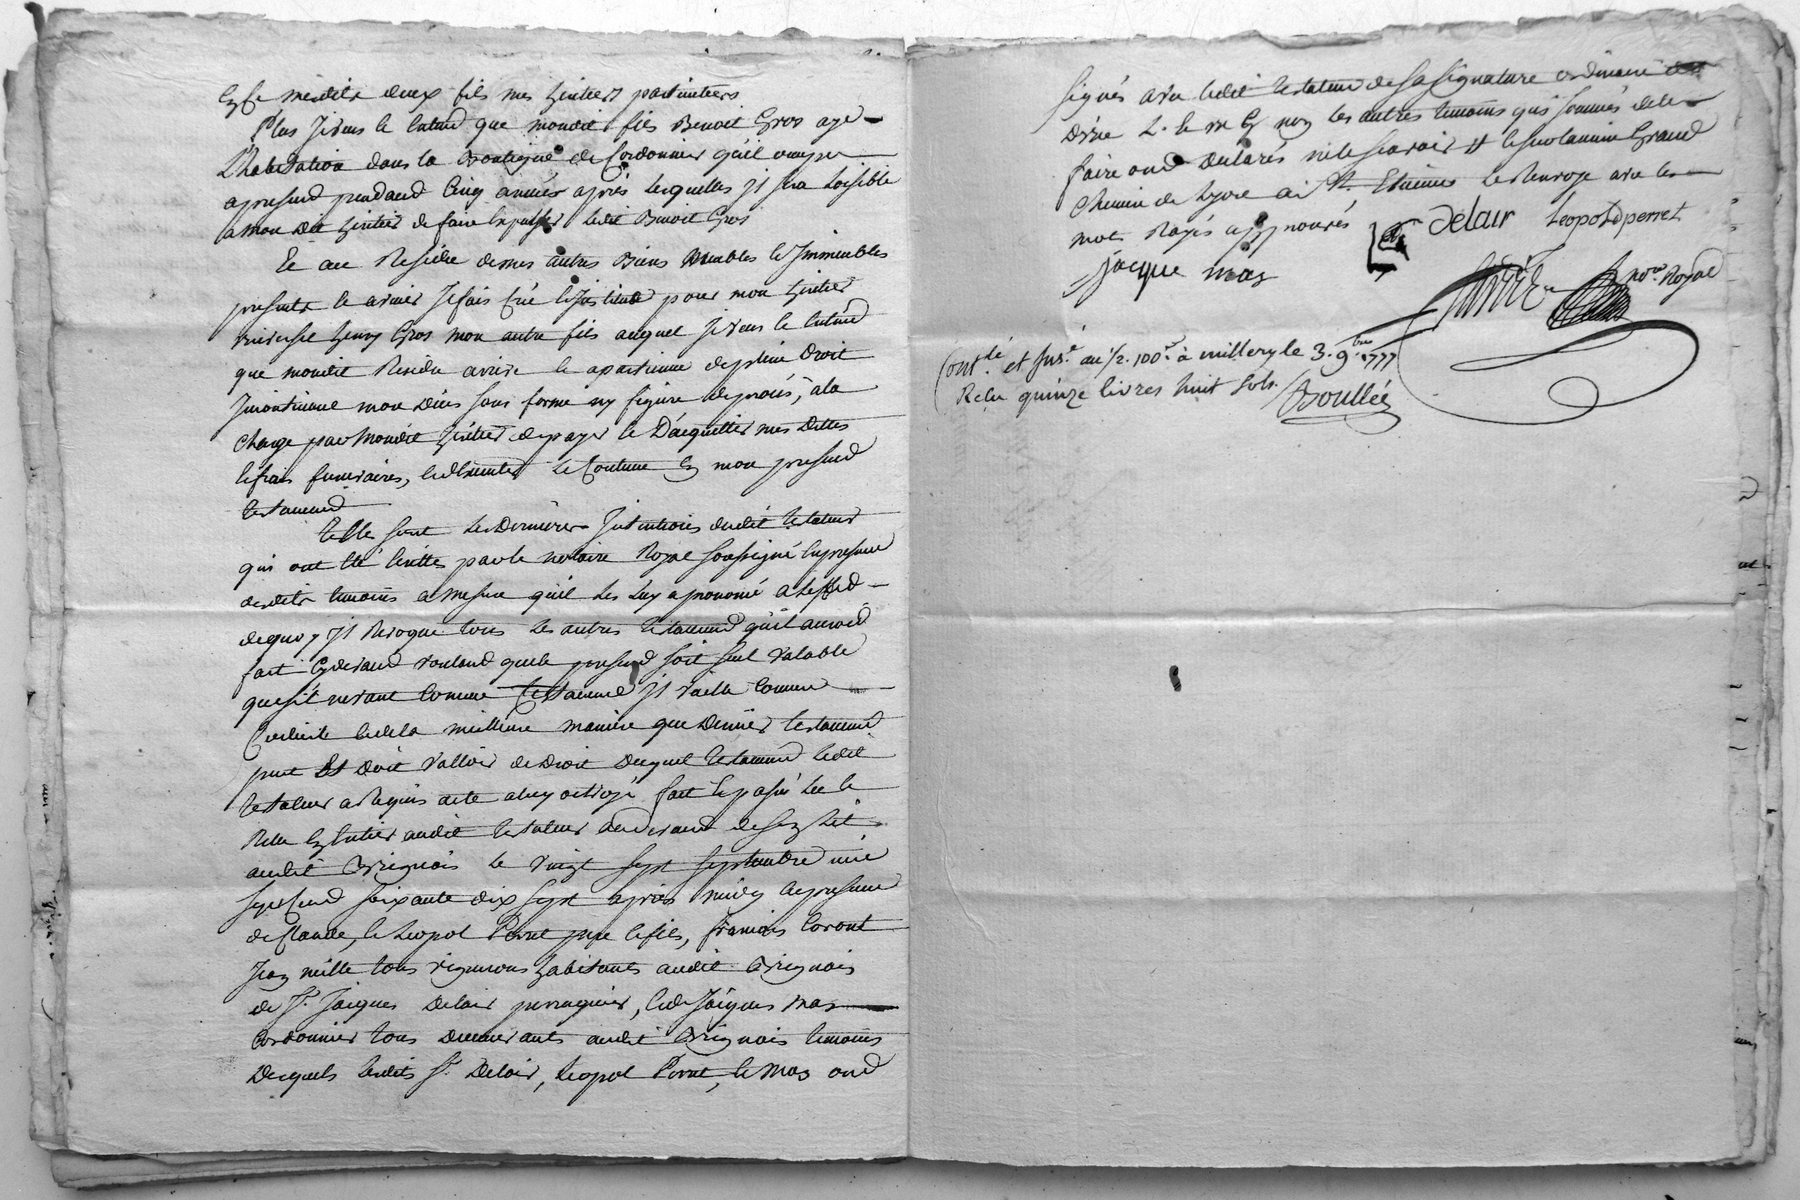 Et ce mesdits deux fils mes heritiers particuliers
Plus je veus et entend que mondit fils Benoit Gros aye
L'habitation dans la Boutique de Cordonnier qu'il occupe
apresend pendand Cinq années après lesquelles jl sera loisible
a mon dit heritier de faire Expulser ledit Benoit Gros
Et au Residu de mes autres Biens Meubles et Jmmeubles
presents et avenir Je fais Crée et Jnstitue pour mon heritier
universel henry Gros mon autre fils auquel je veus et entend
que mondit Residu arrive et apartienne de plein Droit
Jncontinant mon Dècès sans forme ny figure de procès, a la
Charge par Mondit heritier de payer et D'acquitter mes Dettes
et frais funeraires, et d'executer le Contenu En mon presend
testamend
Telles sont les Dernieres Jntentions dudit testateur
qui ont Eté Ecrittes par le notaire Royal soussigné En presence
desdits temoins a mesure qu'il les Luy a prononcé a L'effed
de quoy jl Revoque tous les autres testamend qu'il auroid
fait Cy devand voulant que le presend soit seul Valable
que s'il ne vaut Comme testamend jl vaille Comme
Codicile et de la meilleure manière que Dernier testamend
peut Et Doit Valloir de Droit Duquel testamend ledit
testateur a Requis acte a luy octroyé fait Et passé Lu et
Relu En Entier audit testateur au devand de son Lit
audit Brignais le vingt sept septembre mil
sept Cend soixante dix sept après midy En presence
de Claude, et Leopol Perret pere et fils, François Coront
Jean mille tous vignerons habitants audit Brignais
de Sr. Jacques Delair perruquier, et de Jacques Mas
Cordonnier tous Demeurants audit Brignais temoins
Desquels lesdits Sr. Delair, Leopol Perret, et Mas ond
signés avec ledit testateur de sa signature ordinaire
Dire L. et M G non les autres temoins qui sommés de le
faire ond Declarés ne le sçavoir
Chemin de Lyon a St. Etienne et Renvoye avec les
mots Rayés approuvés
Delair Leopold perret
jacque mas
nore. Royal
Contlé. et Inse. au 1/2. 100e. à millery le 3. 9bre. 1777
Reçu quinze livres huit sols. Boullée